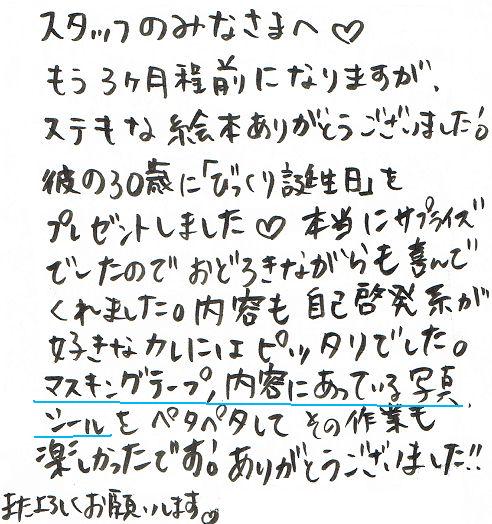 スタッフのみなさまへ♡
もう3ヶ月程前になりますが、
ステキな絵本ありがとうございました!
彼の30歳に「びっくり誕生日」を
プレゼントしました♡ 本当にサプライズ
でしたのでおどろきながらも喜んで
くれました。内容も自己啓発系が
好きなカレにはピッタリでした。
マスキングテープ,内容にあっている写真,
シールをペタペタしてその作業も
楽しかったです!ありがとうございました!!
またよろしくお願いします。